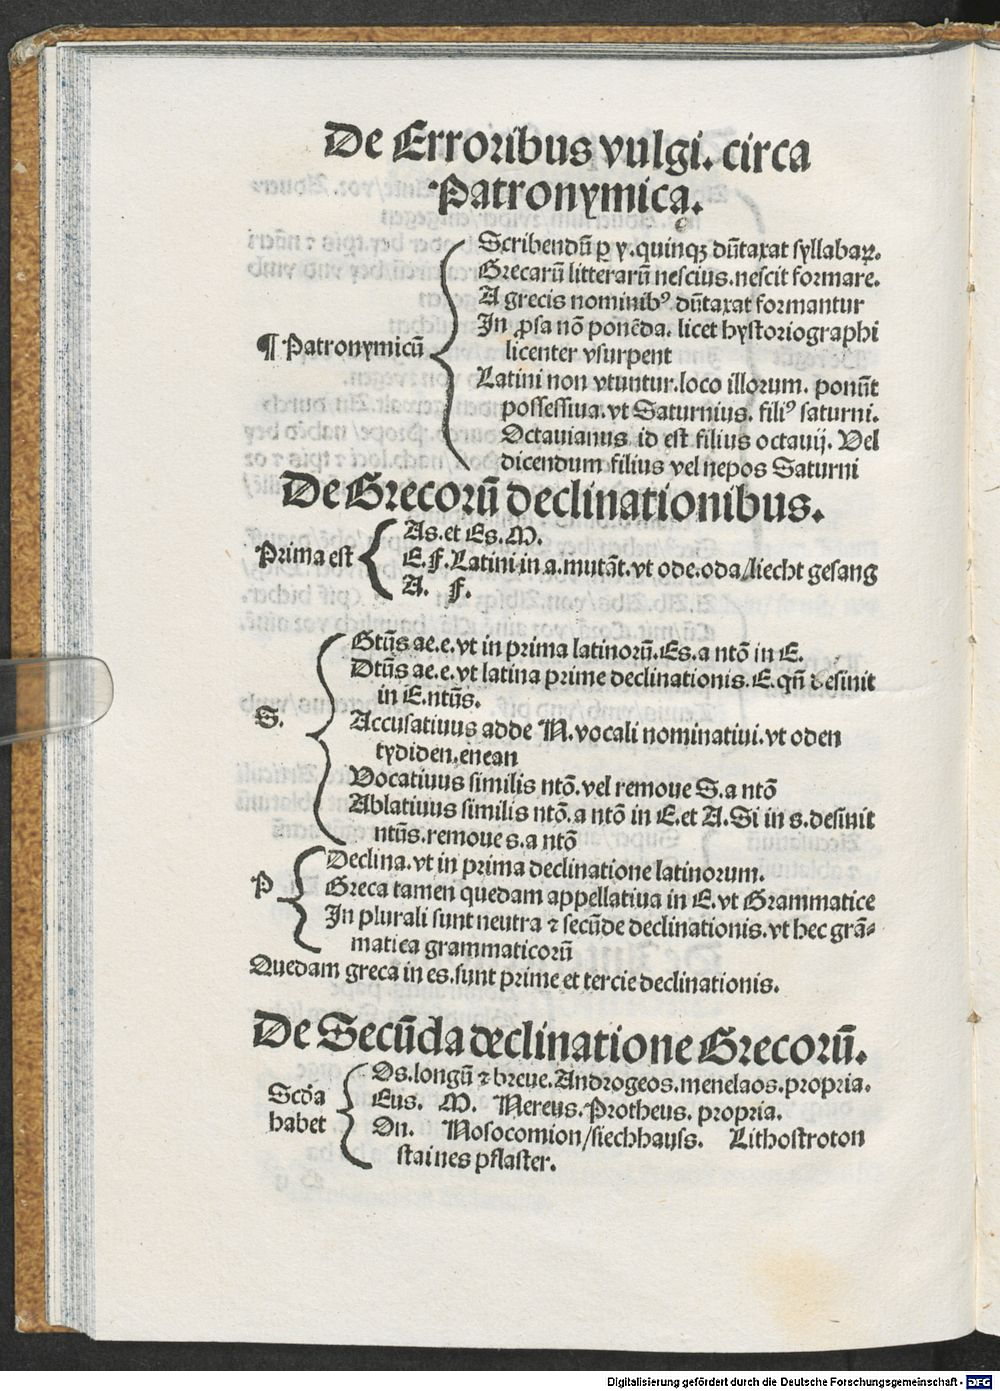 De Erroribus vulgi. circa
Patronymica.
Scribendū ꝑ y. quinqꝫ dūtaxat syllabaꝝ.
Grecarū litterarū nescius. nescit formare.
A grecis nominibꝰ dūtaxat formantur
In ꝓsa nō ponēda. licet hystoriographi
¶ Patronymicū
licenter vsurpent
Latini non vtuntur. loco illorum. ponūt
possessiua. vt Saturnius. filiꝰ saturni.
Octauianus. id est filius octauij. Vel
dicendum filius vel nepos Saturni
De Grecorū declinationibus.
As. et Es. M.
Prima est
E. F. Latini in a. mutāt. vt ode. oda/liecht gesang
A. F.
Gtūs ae. e. vt in prima latinorū. Es. a ntō in E.
Dtūs ae. e. vt latina prime declinationis. E. qn̄ desinit
in E. ntūs.
S.
Accusatiuus adde N. vocali nominatiui. vt oden
tydiden. enean
Vocatiuus similis ntō. vel remoue S. a ntō
Ablatiuus similis ntō. a ntō in E. et A. Si in s. desinit
ntūs. remoue s. a ntō
Declina. vt in prima declinatione latinorum.
P
Greca tamen quedam appellatiua in E. vt Grammatice
In plurali sunt neutra ⁊ secūde declinationis. vt hec grā⸗
matica grammaticorū
Quedam greca in es. sunt prime et tercie declinationis.
De Secūda declinatione Grecorū.
Os. longū ⁊ breue. Androgeos. menelaos. propria.
Scd̄a
Eus. M. Nereus. Protheus. propria.
habet
On. Nosocomion/siechhauss. Lithostroton
staines pflaster.
Digitalisierung gefördert durch die Deutsche Forschungsgemeinschaft - DFG